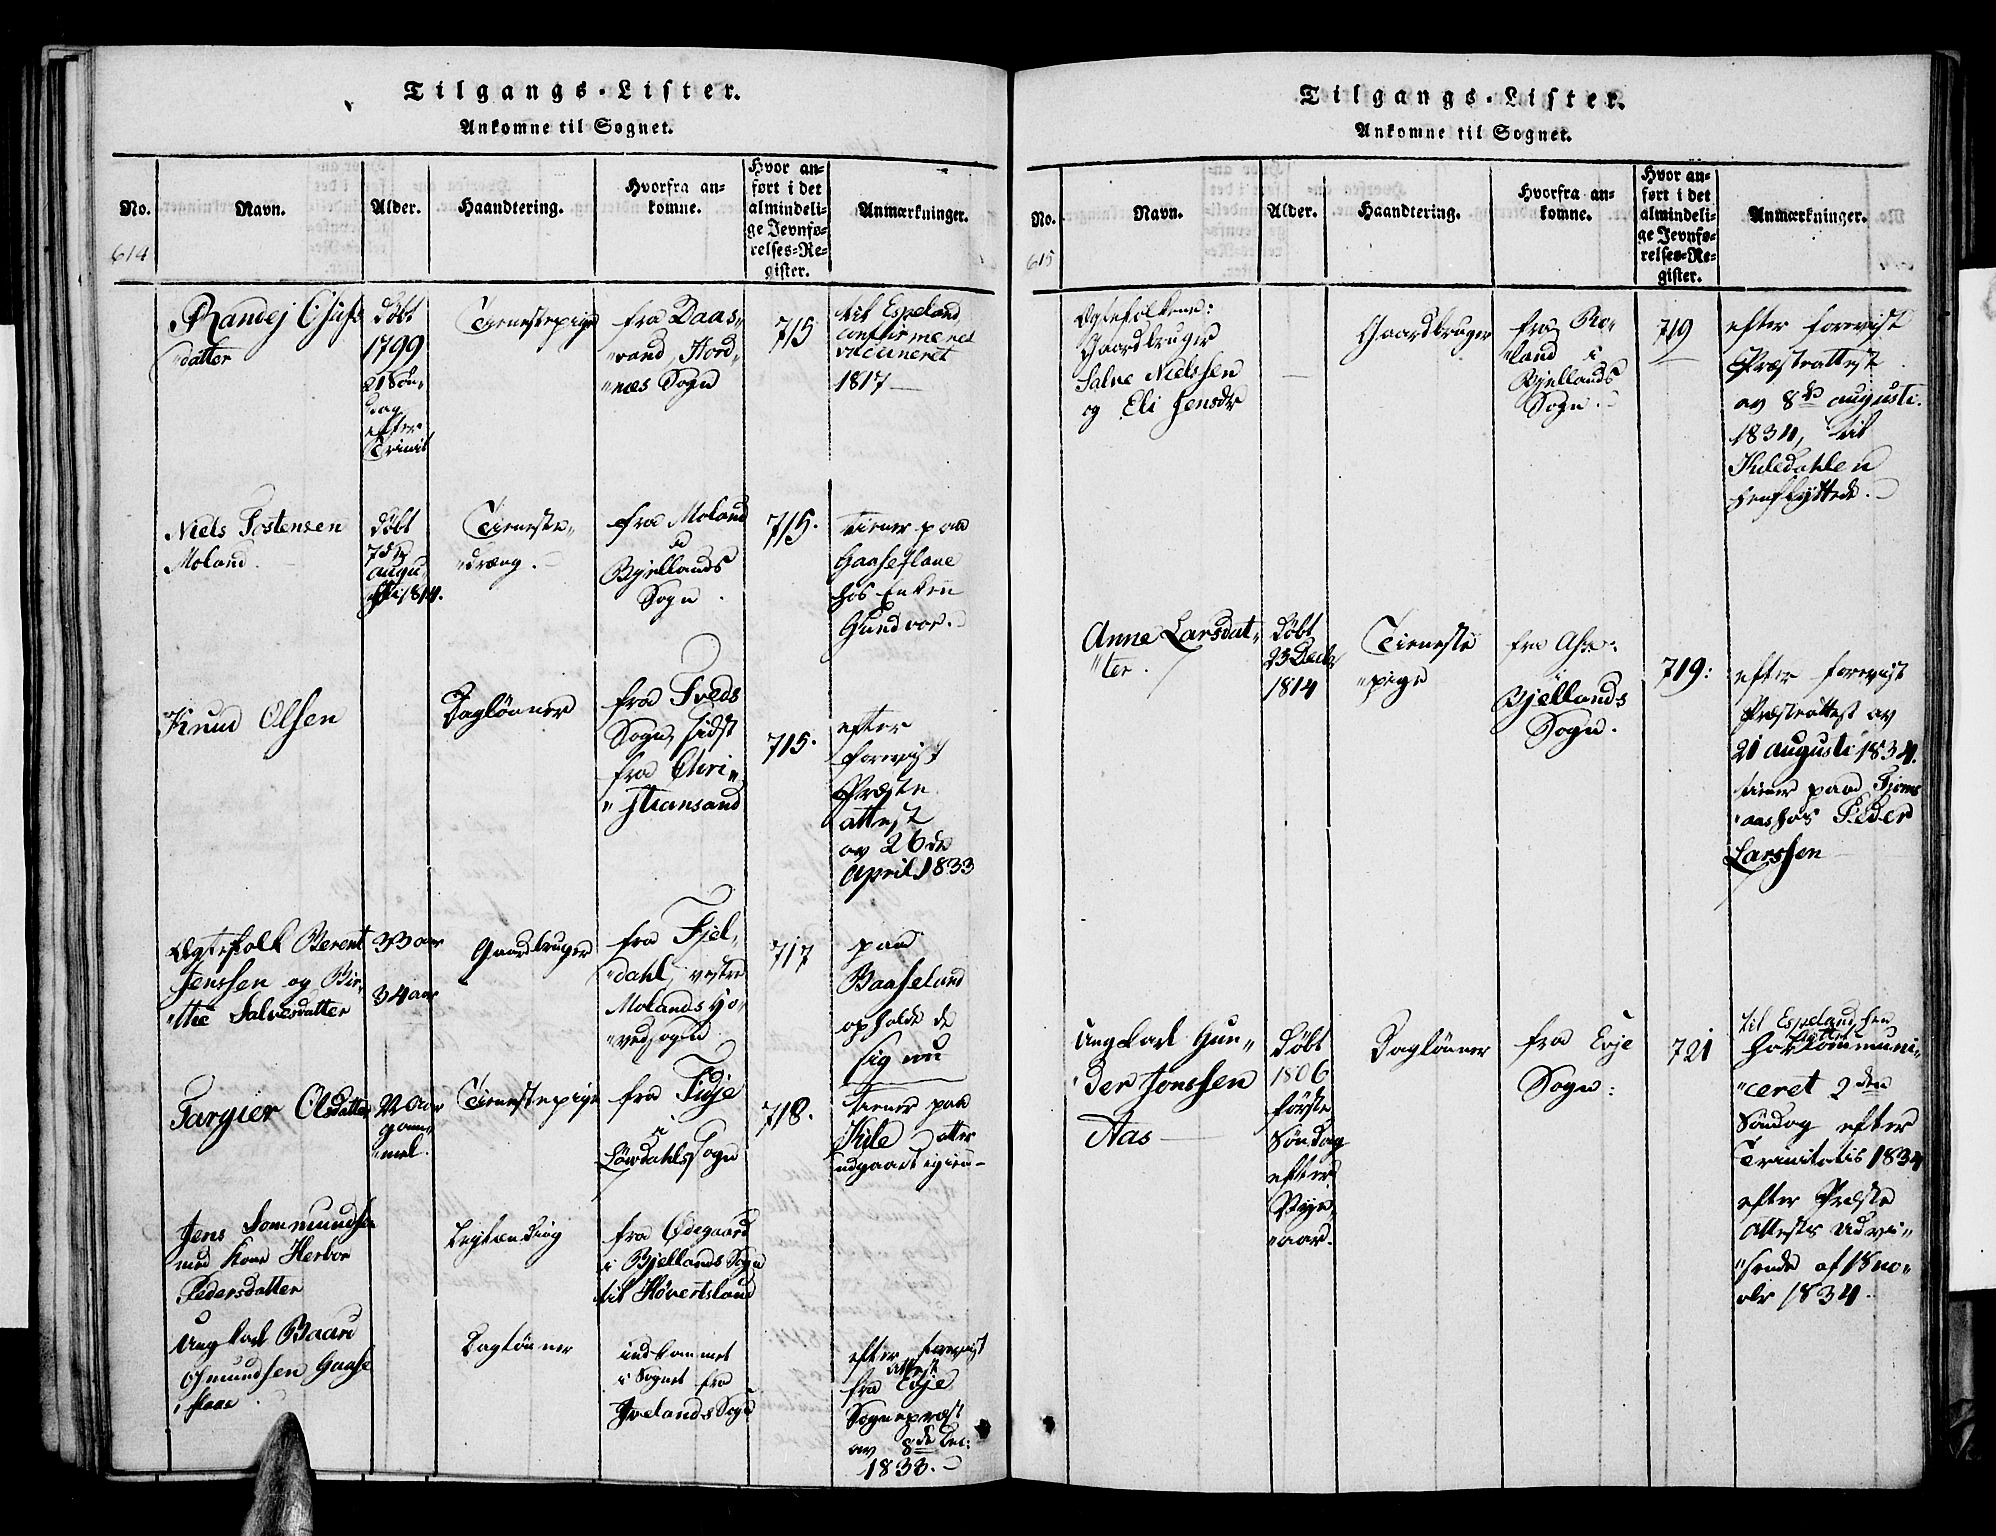 Tilgangs-Lister.
Ankomne til Sognet.
No.
Navn.
Alder.
Haandtering.
Hvorfra an-
komne.
Hvor an-
ført i det
almindeli-
ge Jevnfø-
relses-Re-
gister.
Anmærkninger.
614
Randej
datter
døbt
1799
21 Søn-
dag
efter
Trinit
Tienestepige
fra Daas-
vand, Hord-
næs Sogn
715
til Espeland
confirmeret
vaccineret
1817
Niels Tostensen
Moland.
døbt
7de
augu-
sti 1814.
Tieneste-
dræng.
fra Moland
i
Bjellands
Sogn.
715.
tiener paa
Gaaseflaae
hos Enken
Gundvor.
Knud Olsen
Daglønner
fra Tveds
Sogn, sidst
fra Chri-
stiansand
715.
efter
foreviist
Præste
attest
av 26de
April 1833
Ægtefolk Berent
Jenssen og Bir-
the Salvesdatter
33 aar
34 aar
Gaardbruger
fra Fjel-
dahl, vestre
Molands Ho-
vedsogn
717
paa
Baaseland
opholde de
sig nu
Targier Olsdatter
22 aar
gam-
mel.
Tienestepige
fra Fidje
i
Løvdahls Sogn
718.
tiener paa
Kile atter
udgaaet igien
Jens Tommundsen
med Kone Herbor
Pedersdatter
fra Ødegaard
i Bjellands Sogn
til Høvertsland
Ungkarl Baard
Osmundsen Gaase
flaae.
Daglønner
indkommet
i Sognet fra
Ivelands Sogn
efter foreviist
attest
fra Evje
Sognepræst
av 8de Dec:
1833.
Tilgangs-Lister.
Ankomne til Sognet.
No.
Navn.
Alder.
Haandtering.
Hvorfra an-
komne.
Hvor an-
ført i det
almindeli-
ge Jevnfø-
relses-Re-
gister.
Anmærkninger.
615
Ægtefolkene:
Gaardbruger
Salve Nielssen
og Eli Jensdr
Gaardbruger
fra Ro-
land i
Bjellands
Sogn.
719
efter foreviist
Præsteattest
av 8de augusti
1834, til
Kiledahlen
henflyttede.
Anne Larsdat-
ter.
døbt
23 Decbr
1814
Tieneste
pige
fra
Bjellands
Sogn.
719:
efter foreviist
Præsteattest av
21 augusti 1834.
tiener paa
aas hos Peder
Larssen
Ungkarl Gun-
der Jonssen
Aas
døbt
1806
første
Søndag
efter
Nyt-
aar.
Daglønner
fra Evje
Sogn:
721
til Espeland hen
flyttet
har communi-
ceret 2den
Søndag efter
Trinitatis 1834
efter Præste
Attests udvi-
sende af 18 no-
vbr 1834.